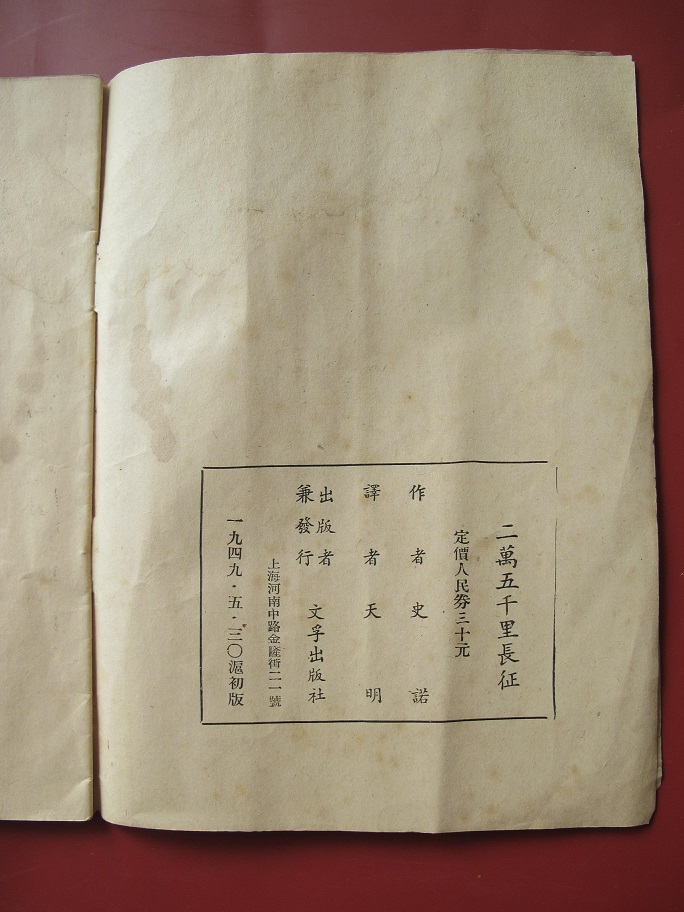 二萬五千里長征
定價人民券三十元
作者史諾
譯者天明
出版者
兼發行
文孚出版社
上海河南中路金隆街二一號
一九四九·五·三〇滬初版